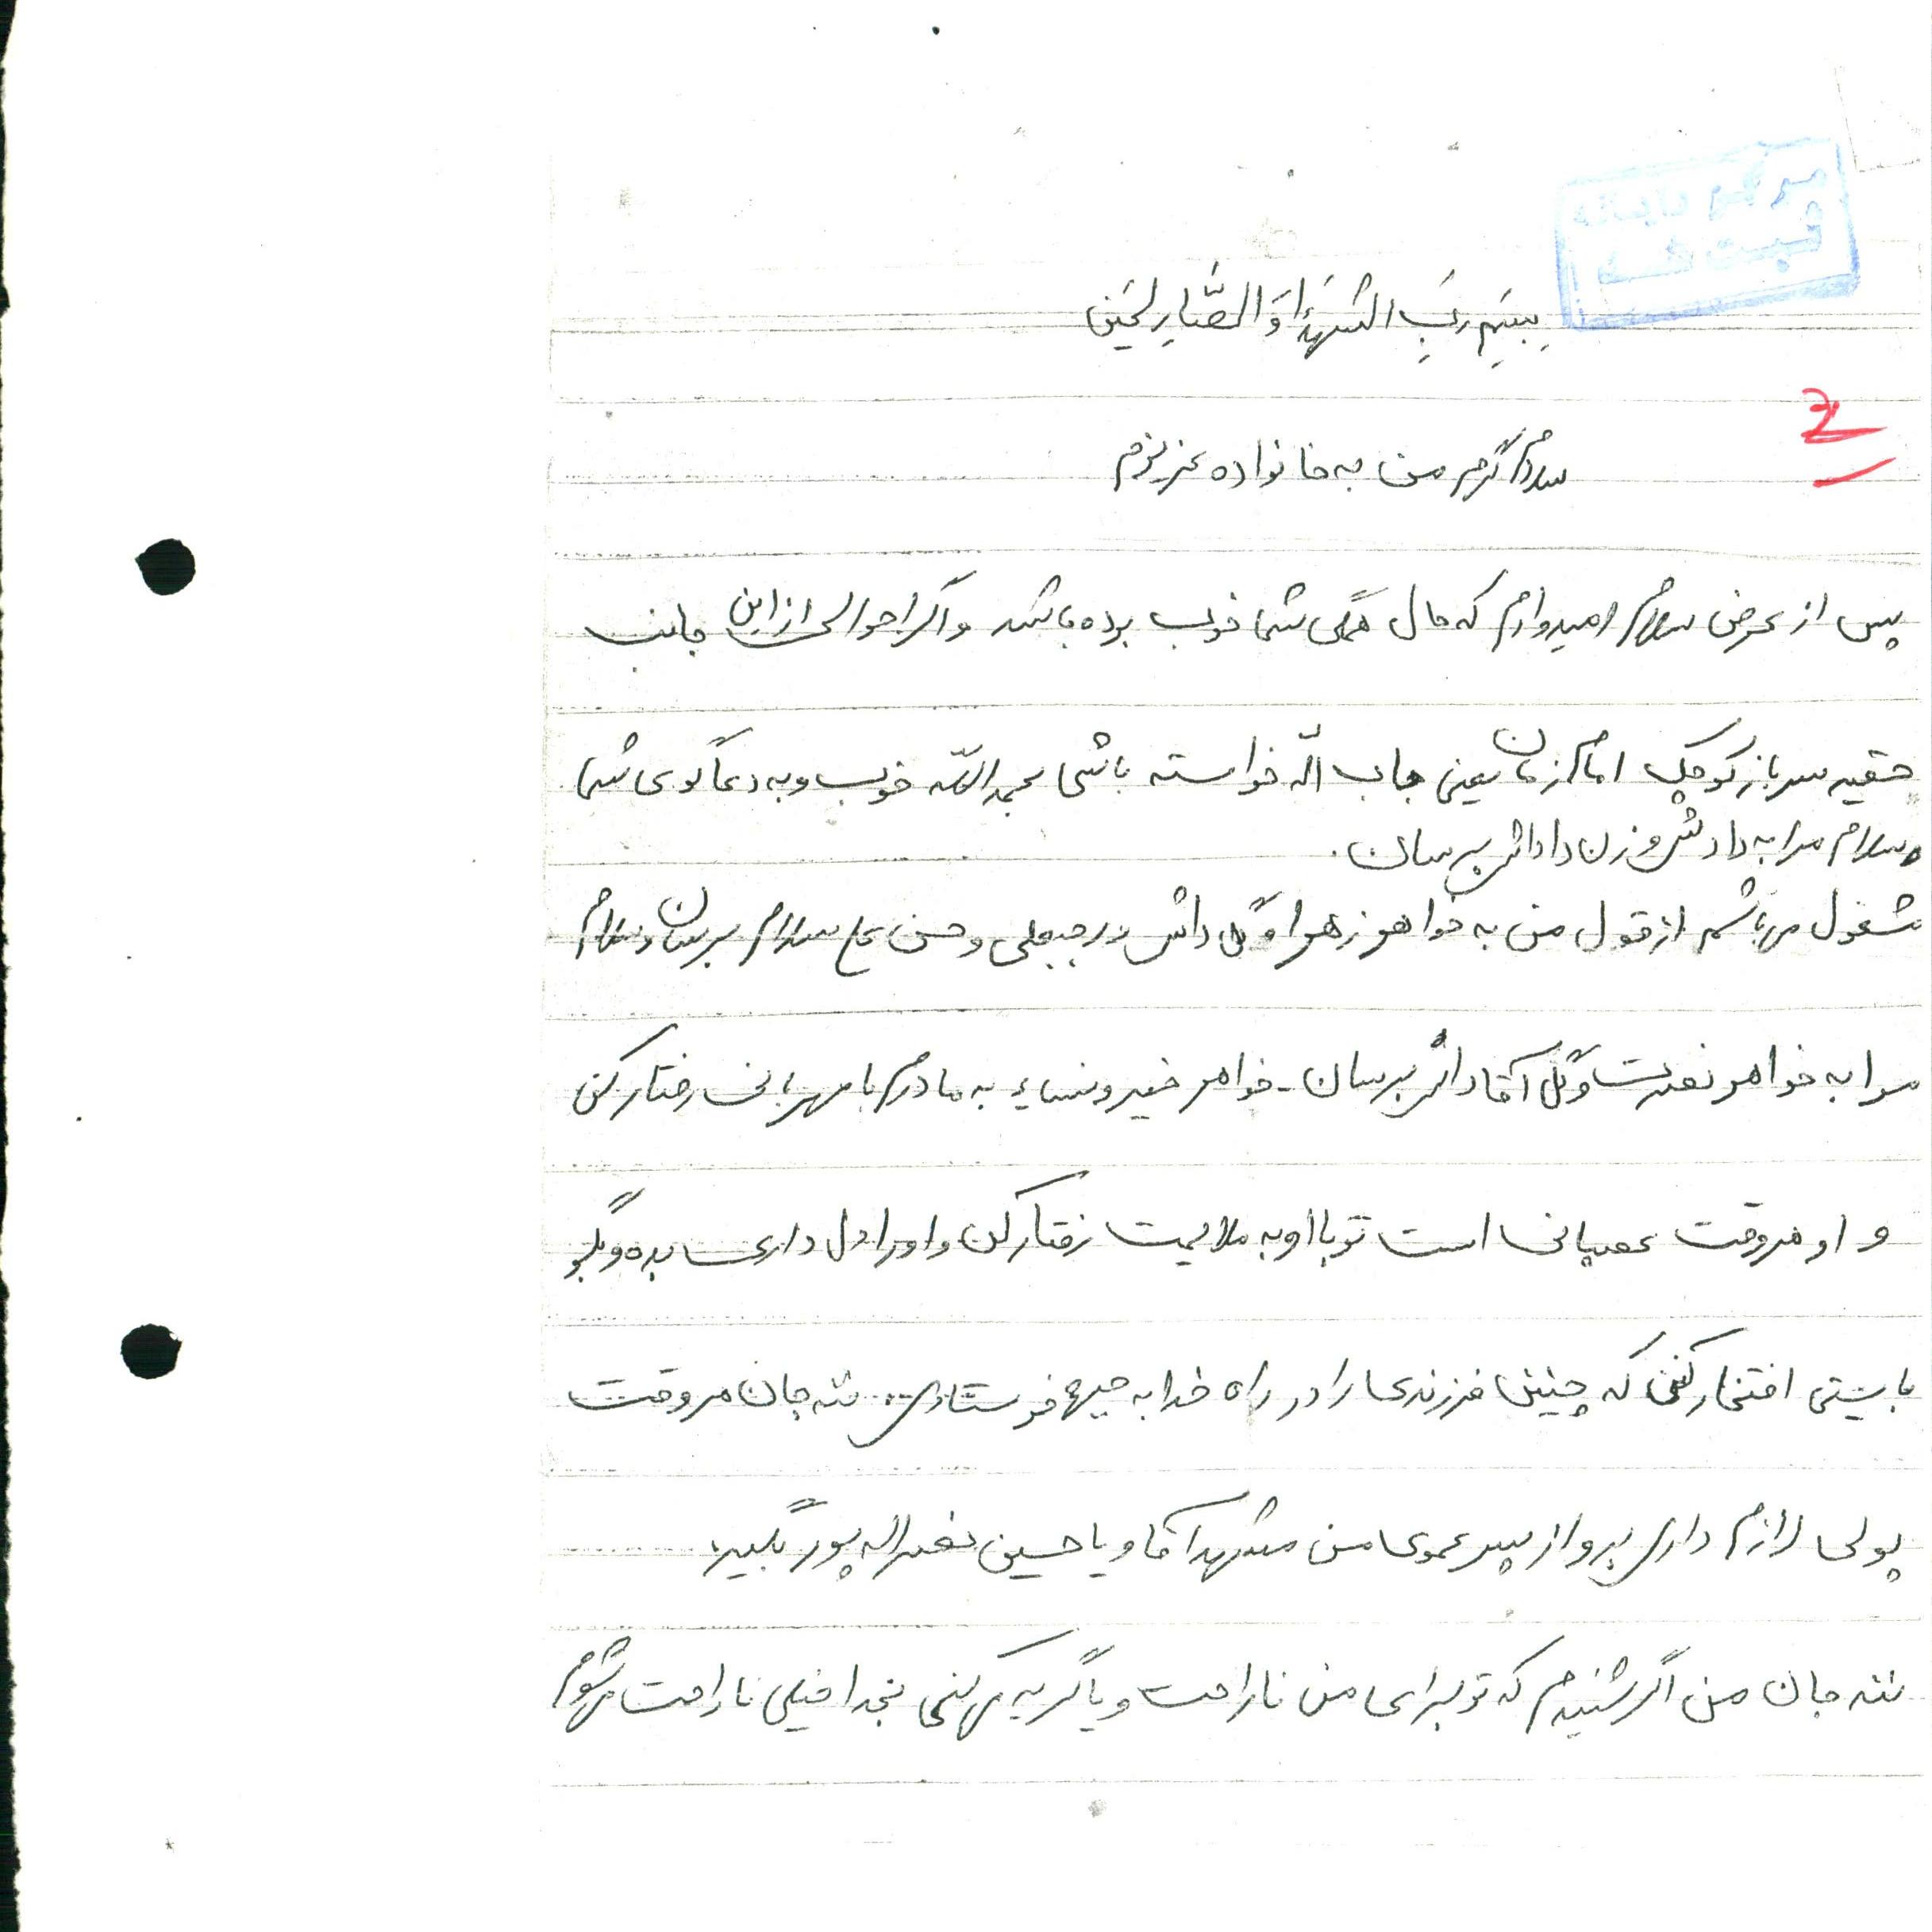 ثبت شد
بِسمِ رَبِّ الشُهَداَ وَ الصَّالِحین
2
سلام گرم من به خانواده عزیزم
پس از عرض سلام امیدوارم که حال همگی شما خوب بوده باشد و اگر احوالی از این جانب
حقیر سرباز کوچک امام زمان یعنی حاب اله خواسته باشی بحمدالله خوب و به دعاگوی شما
مشغول می‌باشم از قول من به خواهر زهرا و گل داش و رجبعلی و حسن علی سلام برسان و سلام
وسلام مرا به داداش و زن داداش برسان.
مرا به خواهر نصرت و گل آقا داش برسان - خواهر خیرونساء به مادرم با مهربانی رفتار کن
و او هروقت عصبانی است تو با او به ملایمت رفتار کن و او را دل داری بده و بگو
بایستی افتخار کنی که چنین فرزندی را در راه خدا به جبهه فرستادی. ننه جان هر وقت
پولی لازم داری برو از پسر عموی من مشهدآقا و یا حسین نصراله پور بگیر.
ننه جان من اگر شنیدم که تو برای من ناراحت و یا گریه میکنی بخدا خیلی ناراحت میشوم